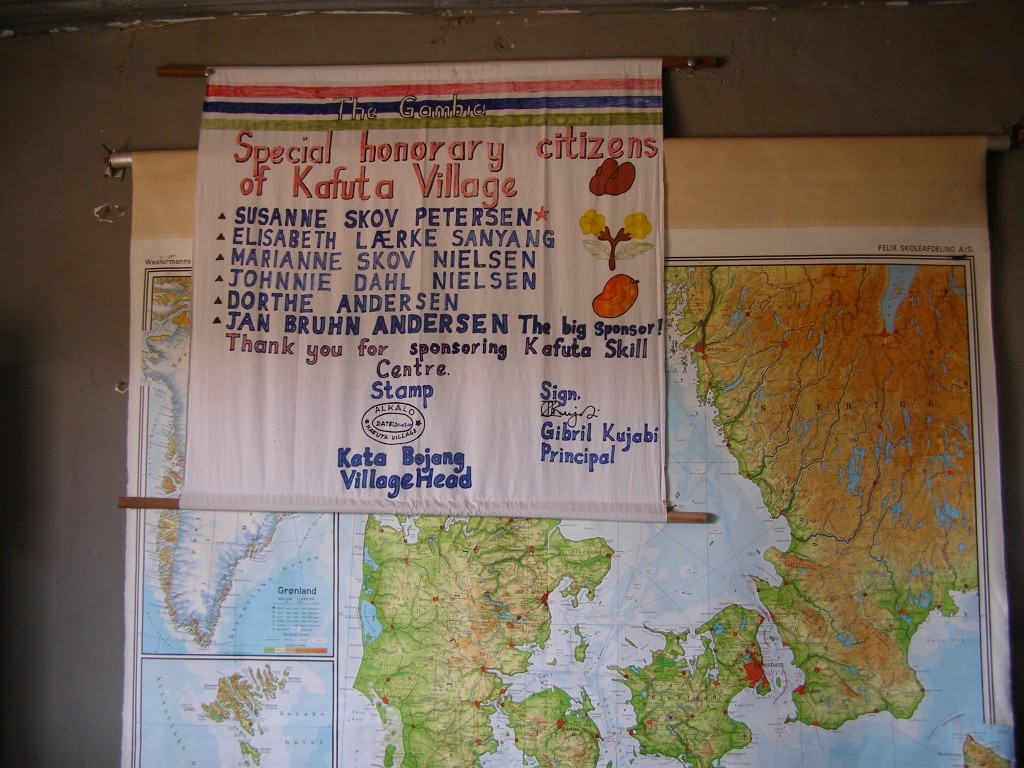 The Gambia
Special honorary citizens
of Kafuta Village
SUSANNE SKOV PETERSEN
ELISABETH LÆRKE SANYANG
MARIANNE SKOV NIELSEN
JOHNNIE DAHL NIELSEN
DORTHE ANDERSEN
JAN BRUHN ANDERSEN The big Sponsor!
Thank you for sponsoring Kafuta Skill
Centre.
Stamp
ALKALO
DATE:
KAFUTA VILLAGE
Kata Bojang
Village Head
Sign.
Gibril Kujabi
Principal
Westermanns
FELIX SKOLEAFDELING A/S.
SVERIGE
Grønland